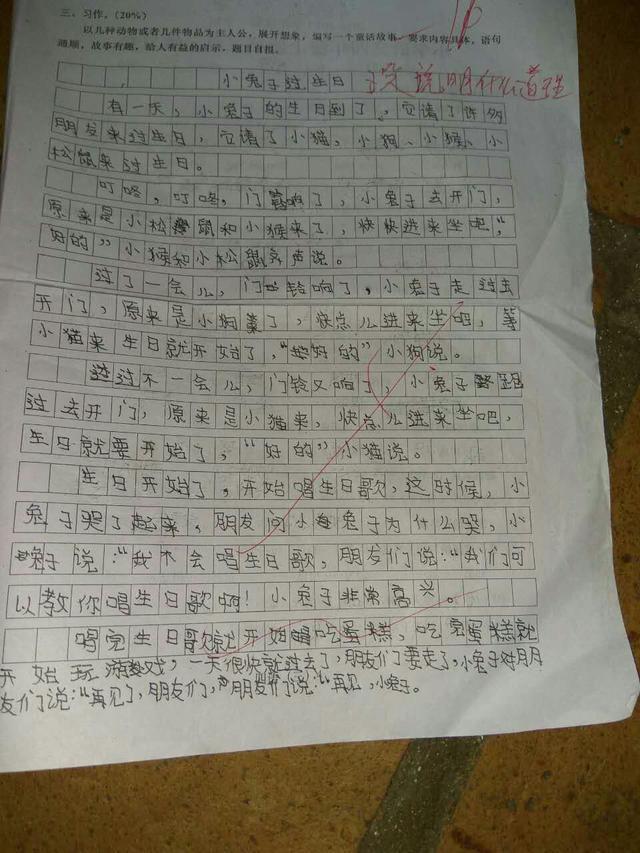 三、习作。（20%）
以几种动物或者几件物品为主人公，展开想象，编写一个童话故事。要求内容具体，语句
通顺，故事有趣，给人有益的启示，题目自拟。
小兔子过生日
说明什么道理
有一天，小兔子的生日到了，它请了许多
朋友来过生日，它请了小猫，小狗、小猴、小
松鼠来过生日。
叮咚，叮咚，门响了，小兔子去开门，
原来是小松鼠和小猴来了，快快进来坐吧，"
好的"小猴和小松鼠齐声说。
过了一会儿，门铃响了，小兔子走过去
开门，原来是小狗来了，快点儿进来坐吧，等
小猫来生日就开始了，"好的"小狗说。
过不一会儿，门铃又响了，小兔子跑
过去开门，原来是小猫来，快点儿进来坐吧，
生日就要开始了，"好的"小猫说。
生日开始了，开始唱生日歌，这时候，小
兔子哭了起来，朋友问小兔子为什么哭，小
兔子说："我不会唱生日歌，朋友们说："我们可
以教你唱生日歌啊！小兔子非常高兴。
唱完生日歌就开始吃蛋糕，吃完蛋糕就
开始玩游戏，一天很快就过去了，朋友们要走了，小兔子对朋
友们说："再见了，朋友们，"朋友们说："再见，小兔子。